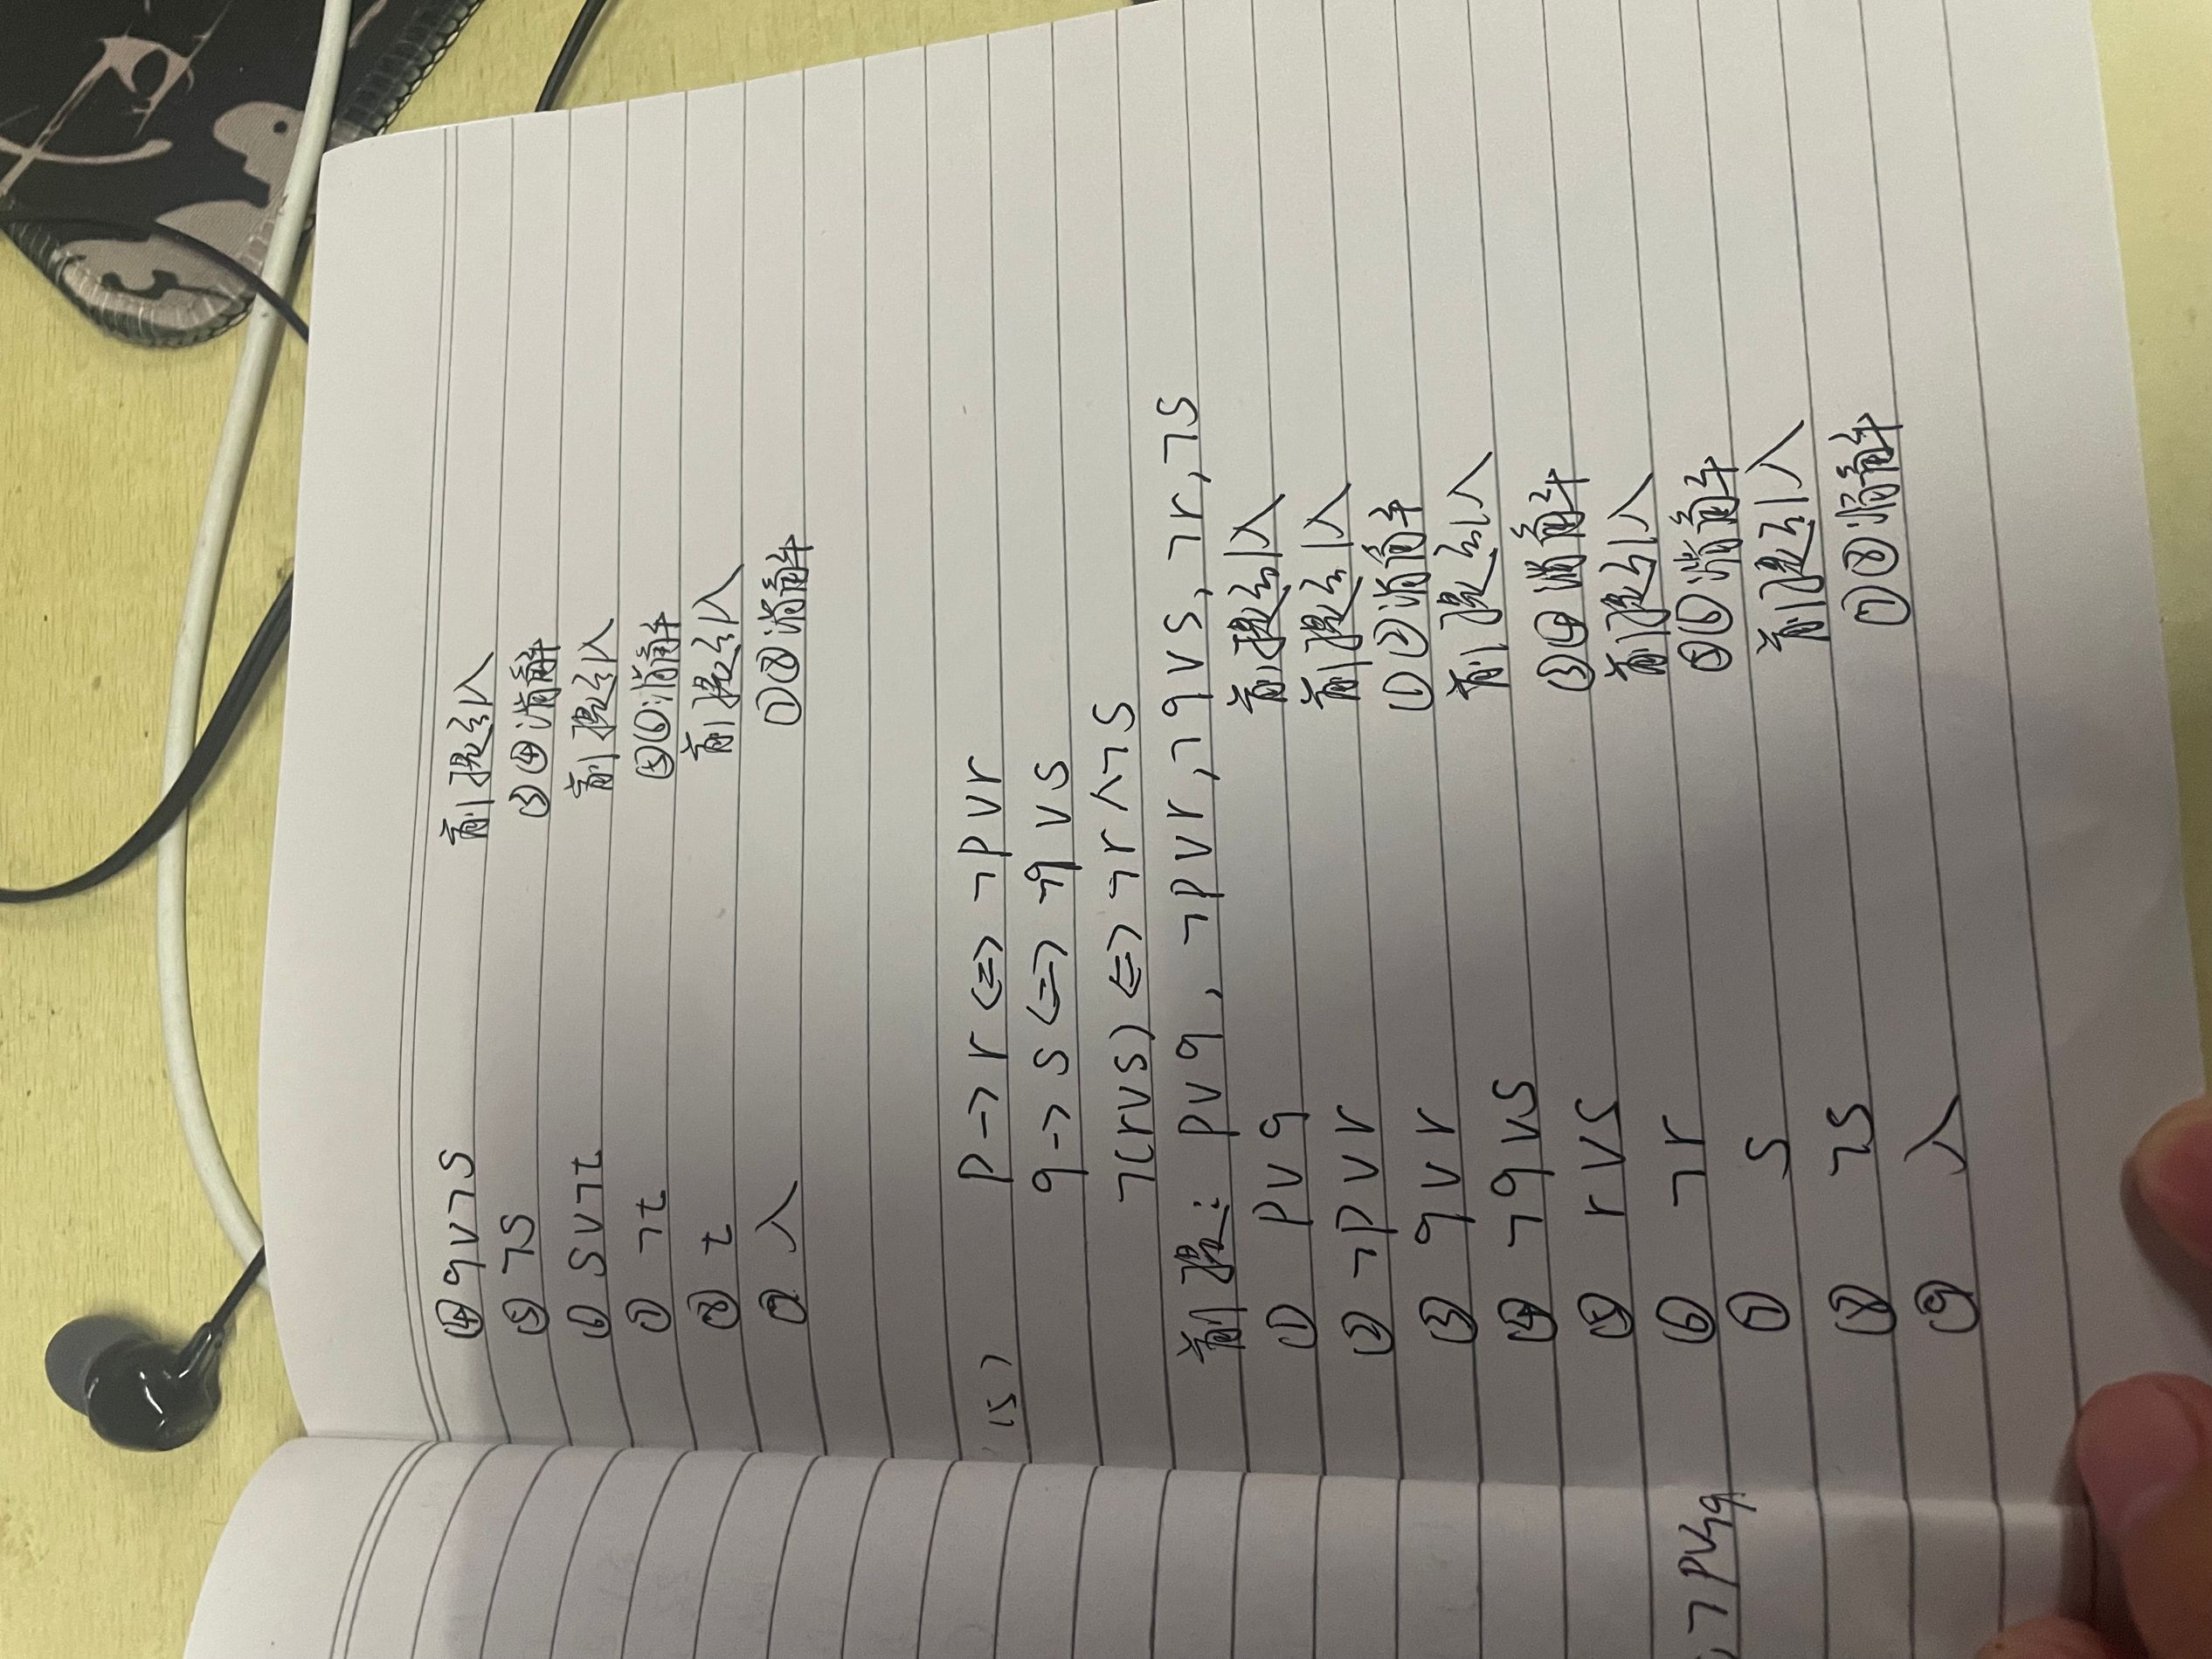 ④ q∨¬s 前提引入
⑤ ¬s ③④消解
⑥ s∨¬t 前提引入
⑦ ¬t ⑤⑥消解
⑧ t 前提引入
⑨ λ ⑦⑧消解
(5) p→r⇔¬p∨r
q→s⇔¬q∨s
¬(r∨s)⇔¬r∧¬s
前提: p∨q, ¬p∨r, ¬q∨s, ¬r, ¬s
① p∨q 前提引入
② ¬p∨r 前提引入
③ q∨r ①②消解
④ ¬q∨s 前提引入
⑤ r∨s ③④消解
⑥ ¬r 前提引入
⑦ s ⑤⑥消解
⑧ ¬s 前提引入
⑨ λ ⑦⑧消解
, ¬p∨¬q